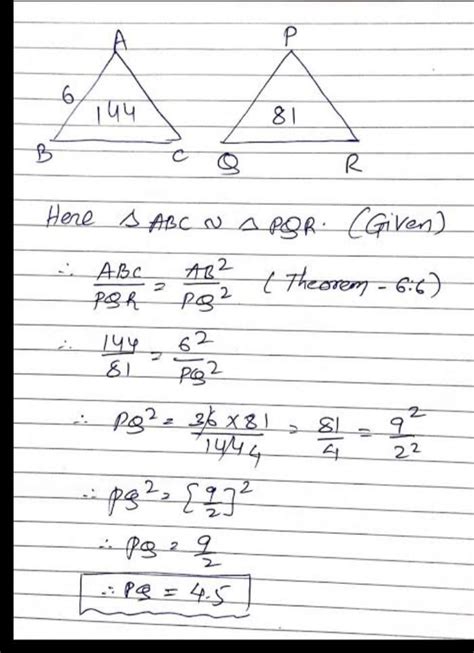 A P
6 144 81
B C Q R
Here △ ABC ~ △ PQR. (Given)
∴ ABC/PQR = AB²/PQ² (Theorem - 6.6)
∴ 144/81 = 6²/PQ²
∴ PQ² = 36 × 81/144 4 = 81/4 = 9²/2²
∴ PQ² = [9/2]²
∴ PQ = 9/2
∴ PQ = 4.5